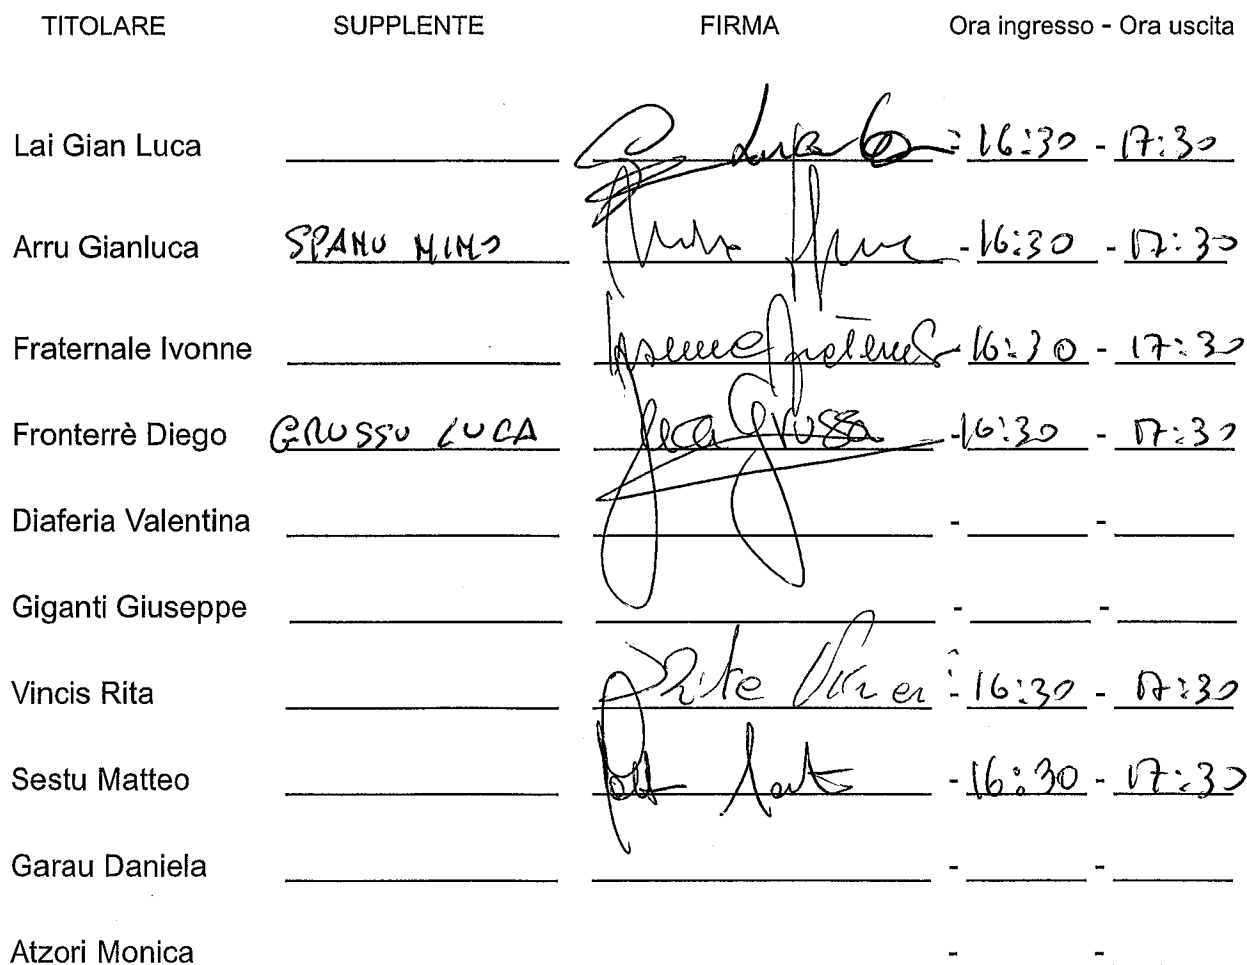 TITOLARE SUPPLENTE FIRMA Ora ingresso - Ora uscita
Lai Gian Luca - 16:30 - 17:30
Arru Gianluca SPANU MIMO - 16:30 - 17:30
Fraternale Ivonne Ivonne Fraternale - 16:30 - 17:30
Fronterrè Diego GRUSSU LUCA Luca Grussu - 16:30 - 17:30
Diaferia Valentina - -
Giganti Giuseppe - -
Vincis Rita Rita Vincis - 16:30 - 17:30
Sestu Matteo - 16:30 - 17:30
Garau Daniela - -
Atzori Monica - -